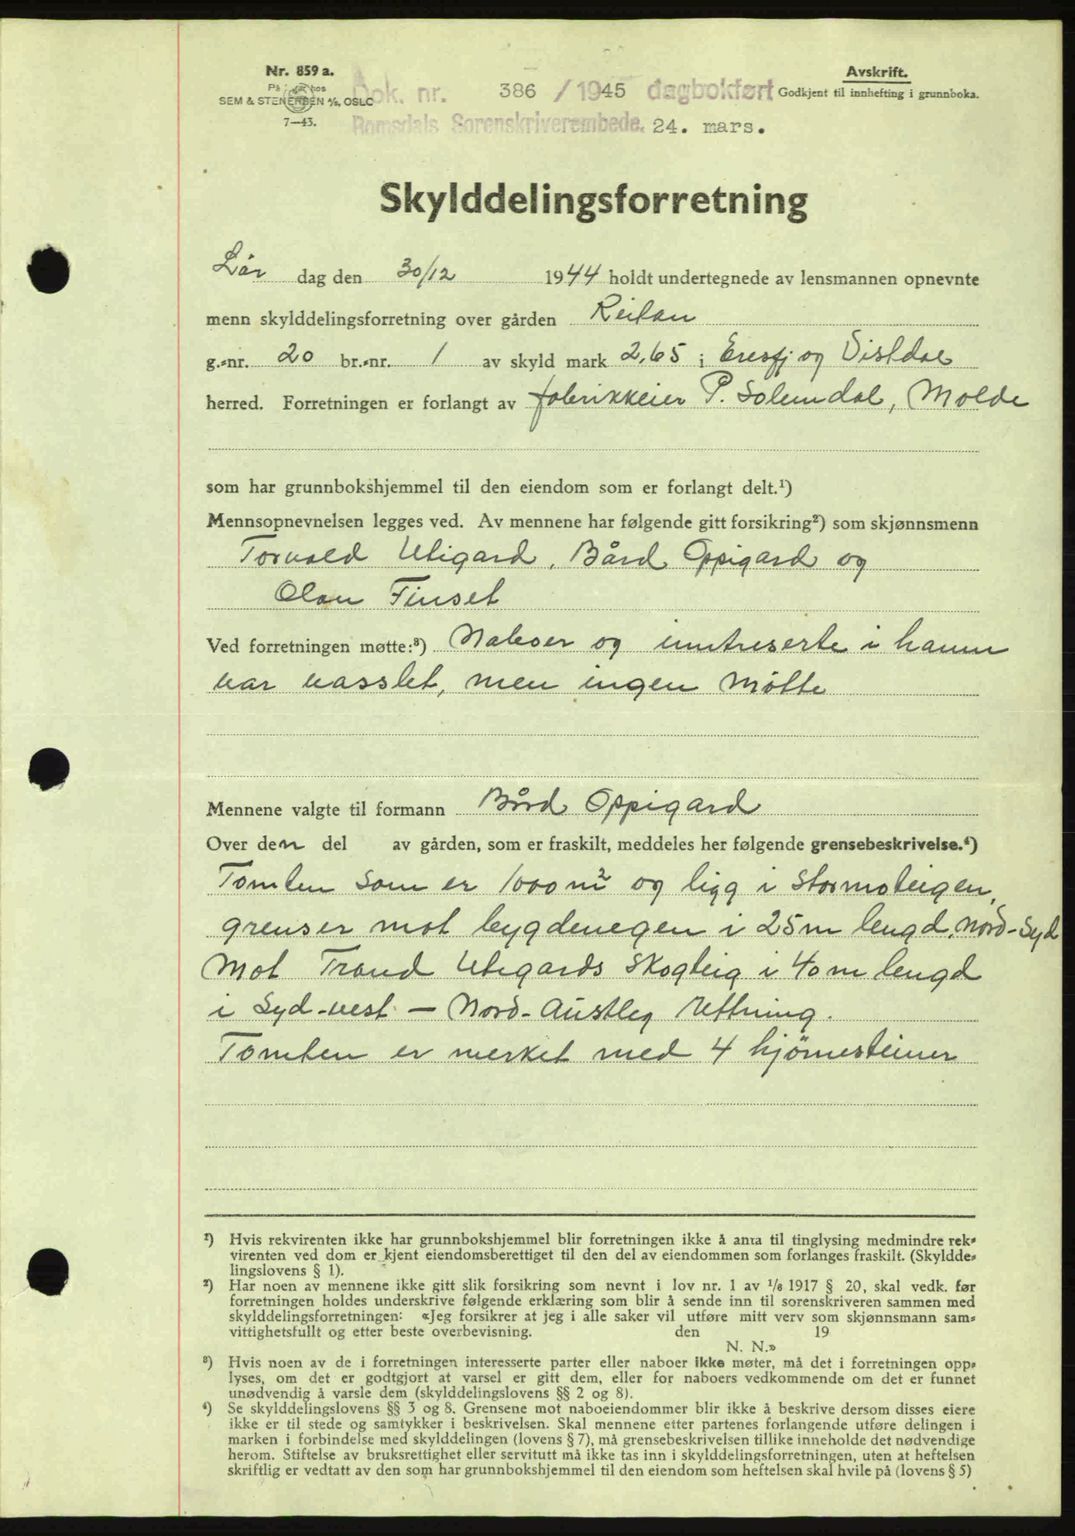 Nr. 859 a.
Avskrift.
På lager hos
SEM & STENERSEN A/S, OSLO
7—43.
Dok. nr. 386 / 1945 dagbokført
Godkjent til innhefting i grunnboka.
Romsdals Sorenskriverembede. 24. mars.
Skylddelingsforretning
Lår dag den 30/12 1944 holdt undertegnede av lensmannen opnevnte
menn skylddelingsforretning over gården Reitan
g.-nr. 20 br.-nr. 1 av skyld mark 2,65 i Eresfj og Vistdal
herred. Forretningen er forlangt av fabrikkeier P. Solemdal, Molde
som har grunnbokshjemmel til den eiendom som er forlangt delt.¹)
Mennsopnevnelsen legges ved. Av mennene har følgende gitt forsikring²) som skjønnsmenn
Torvald Utigard, Bård Oppigard og
Olav Finset
Ved forretningen møtte:³) Naboer og inntreserte i hamn
var vasslet, men ingen møtte
Mennene valgte til formann Bård Oppigard
Over den del av gården, som er fraskilt, meddeles her følgende grensebeskrivelse.⁴)
Tomten som er 1000 m² og ligg i Stormoteigen,
grenser mot bygdevegen i 25 m lengd, Nord-Syd
Mot Trond Utigards Skogteig i 40 m lengd
i Syd-vest — Nord-Austleg rettning.
Tomten er merket med 4 hjørnesteiner
¹) Hvis rekvirenten ikke har grunnbokshjemmel blir forretningen ikke å anta til tinglysing medmindre rek-
virenten ved dom er kjent eiendomsberettiget til den del av eiendommen som forlanges fraskilt. (Skyldde-
lingslovens § 1).
²) Har noen av mennene ikke gitt slik forsikring som nevnt i lov nr. 1 av 1/6 1917 § 20, skal vedk. før
forretningen holdes underskrive følgende erklæring som blir å sende inn til sorenskriveren sammen med
skylddelingsforretningen: «Jeg forsikrer at jeg i alle saker vil utføre mitt verv som skjønnsmann sam-
vittighetsfullt og etter beste overbevisning. den 19
N. N.»
³) Hvis noen av de i forretningen interesserte parter eller naboer ikke møter, må det i forretningen opp-
lyses, om det er godtgjort at varsel er gitt dem, eller for naboers vedkommende om det er funnet
unødvendig å varsle dem (skylddelingslovens §§ 2 og 8).
⁴) Se skylddelingslovens §§ 3 og 8. Grensene mot naboeiendommer blir ikke å beskrive dersom disses eiere
ikke er til stede og samtykker i beskrivelsen. Skal mennene etter partenes forlangende utføre delingen i
marken i forbindelse med skylddelingen (lovens § 7), må grensebeskrivelsen tillike inneholde det nødvendige
herom. Stiftelse av bruksrettighet eller servitutt må ikke tas inn i skylddelingsforretningen, uten at heftelsen
skriftlig er vedtatt av den som har grunnbokshjemmel til den eiendom som heftelsen skal hvile på (lovens § 5)